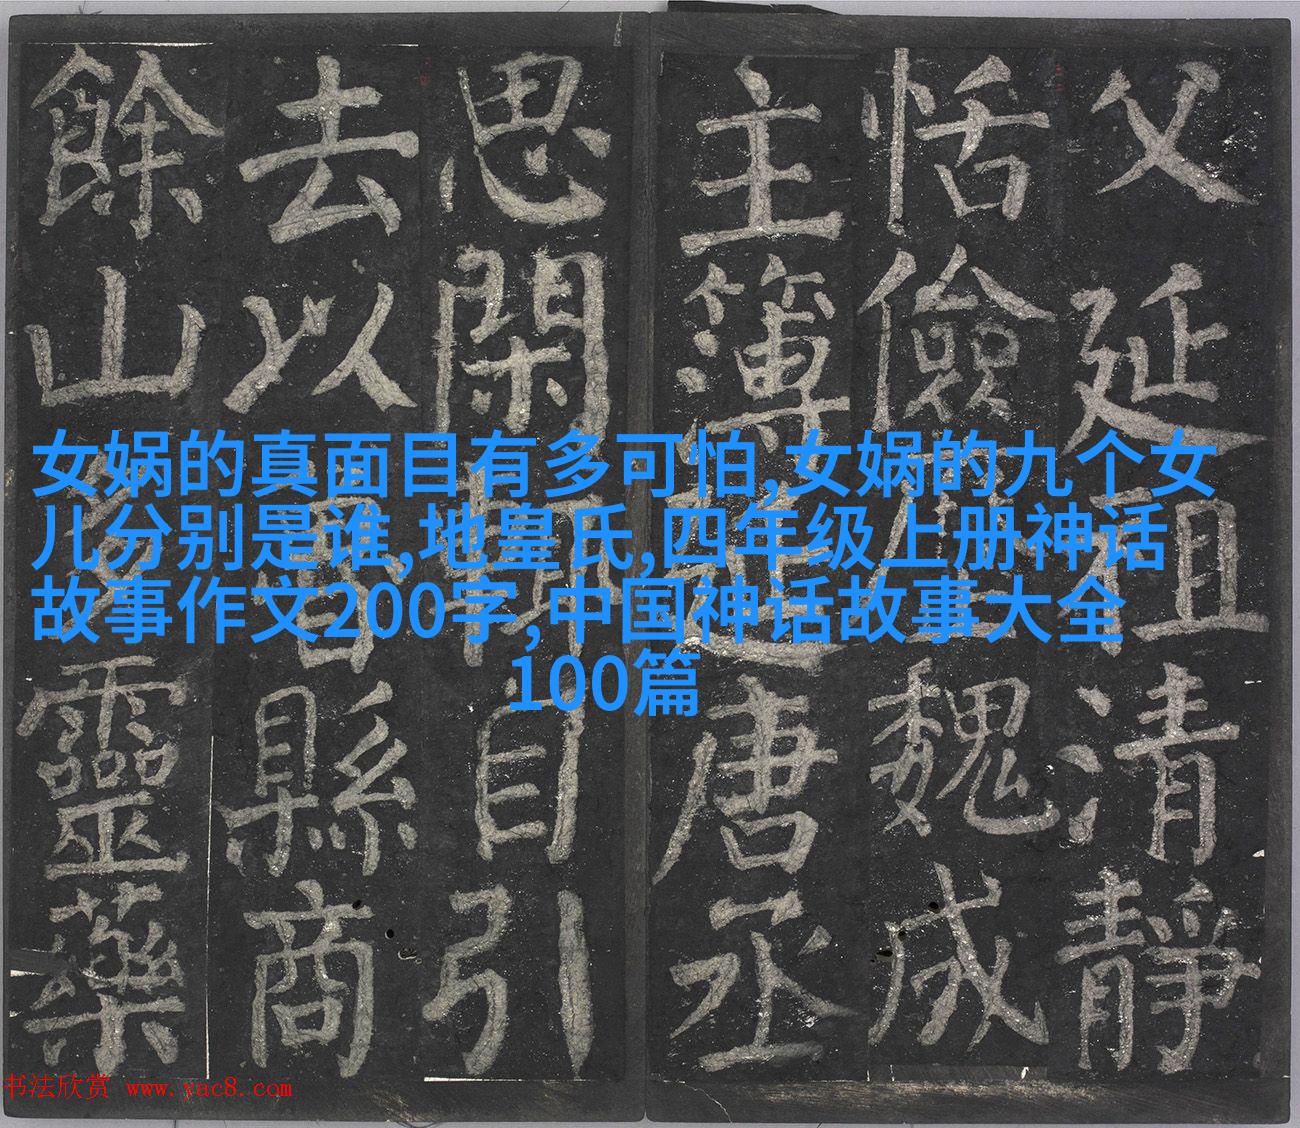 女娲的真面目有多可怕,女娲的九个女
儿分别是谁,地皇氏,四年级上册神话
故事作文200字,中国神话故事大全
100篇
父延祖清靜
恬儉魏成
主簿延唐丞
思閑自引
去以魯縣商
餘山多靈藥
书法欣赏 www.yac8.com